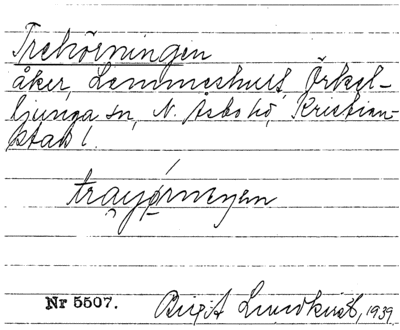 Trehörningen
åker, Lemmeshult, Örkel-
ljunga sn, N. Åsbo hd, Kristian-
stads l.
Nr 5507. Birgit Lundkvist, 1939.